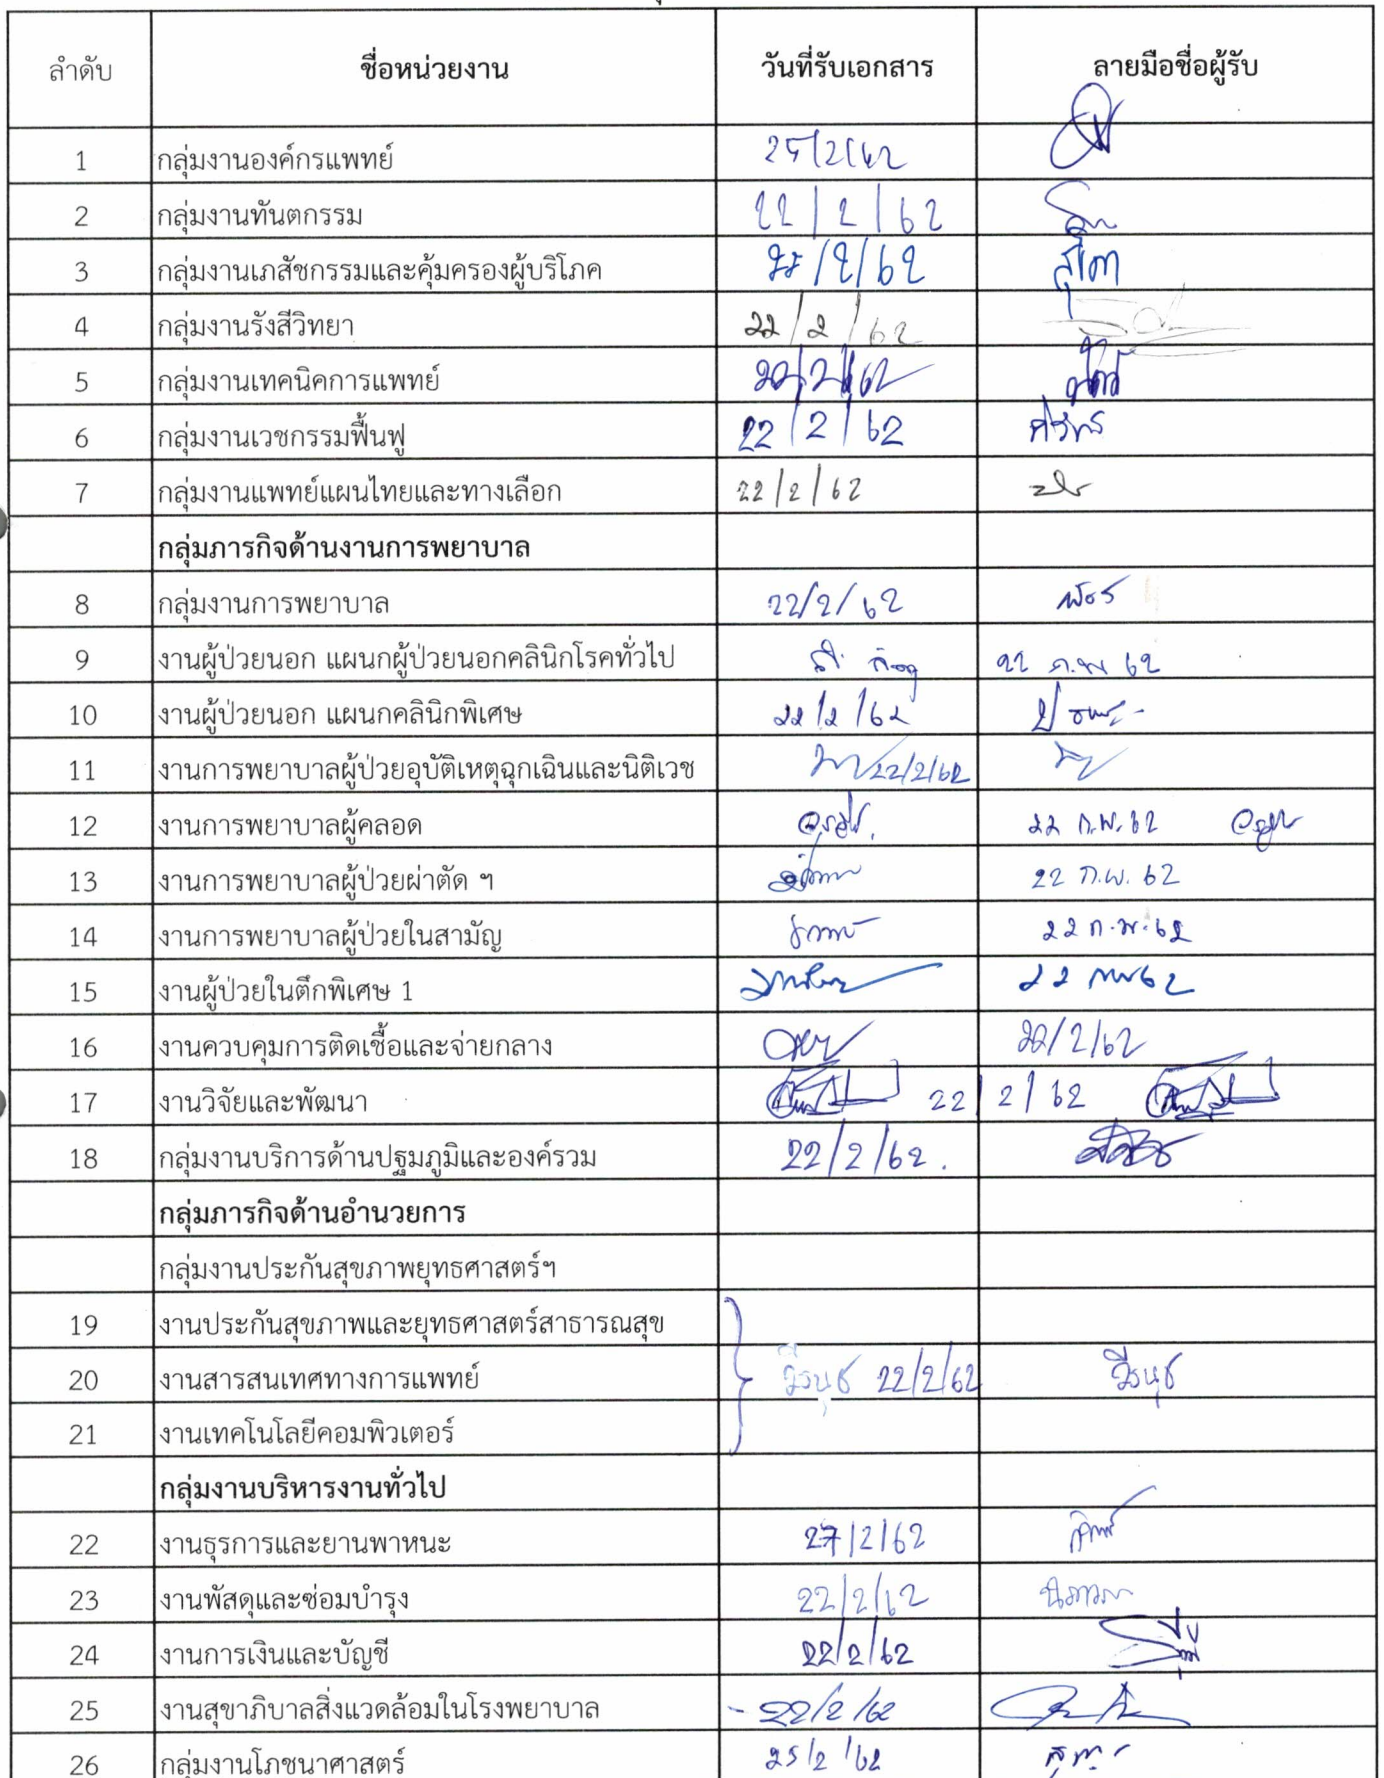 ลำดับ ชื่อหน่วยงาน วันที่รับเอกสาร ลายมือชื่อผู้รับ
1 กลุ่มงานองค์กรแพทย์ 25/2/62
2 กลุ่มงานทันตกรรม 22/2/62
3 กลุ่มงานเภสัชกรรมและคุ้มครองผู้บริโภค 22/2/62
4 กลุ่มงานรังสีวิทยา 22/2/62
5 กลุ่มงานเทคนิคการแพทย์ 22/2/62
6 กลุ่มงานเวชกรรมฟื้นฟู 22/2/62
7 กลุ่มงานแพทย์แผนไทยและทางเลือก 22/2/62
กลุ่มภารกิจด้านงานการพยาบาล
8 กลุ่มงานการพยาบาล 22/2/62
9 งานผู้ป่วยนอก แผนกผู้ป่วยนอกคลินิกโรคทั่วไป 22 ก.พ 62
10 งานผู้ป่วยนอก แผนกคลินิกพิเศษ 22/2/62
11 งานการพยาบาลผู้ป่วยอุบัติเหตุฉุกเฉินและนิติเวช 22/2/62
12 งานการพยาบาลผู้คลอด 22 ก.พ. 62
13 งานการพยาบาลผู้ป่วยผ่าตัด ฯ 22 ก.พ. 62
14 งานการพยาบาลผู้ป่วยในสามัญ 22 ก.พ. 62
15 งานผู้ป่วยในตึกพิเศษ 1 22 กพ 62
16 งานควบคุมการติดเชื้อและจ่ายกลาง 22/2/62
17 งานวิจัยและพัฒนา 22/2/62
18 กลุ่มงานบริการด้านปฐมภูมิและองค์รวม 22/2/62.
กลุ่มภารกิจด้านอำนวยการ
กลุ่มงานประกันสุขภาพยุทธศาสตร์ฯ
19 งานประกันสุขภาพและยุทธศาสตร์สาธารณสุข
20 งานสารสนเทศทางการแพทย์ วีรนุช 22/2/62 วีรนุช
21 งานเทคโนโลยีคอมพิวเตอร์
กลุ่มงานบริหารงานทั่วไป
22 งานธุรการและยานพาหนะ 27/2/62
23 งานพัสดุและซ่อมบำรุง 22/2/62
24 งานการเงินและบัญชี 22/2/62
25 งานสุขาภิบาลสิ่งแวดล้อมในโรงพยาบาล - 22/2/62
26 กลุ่มงานโภชนาศาสตร์ 25/2/62